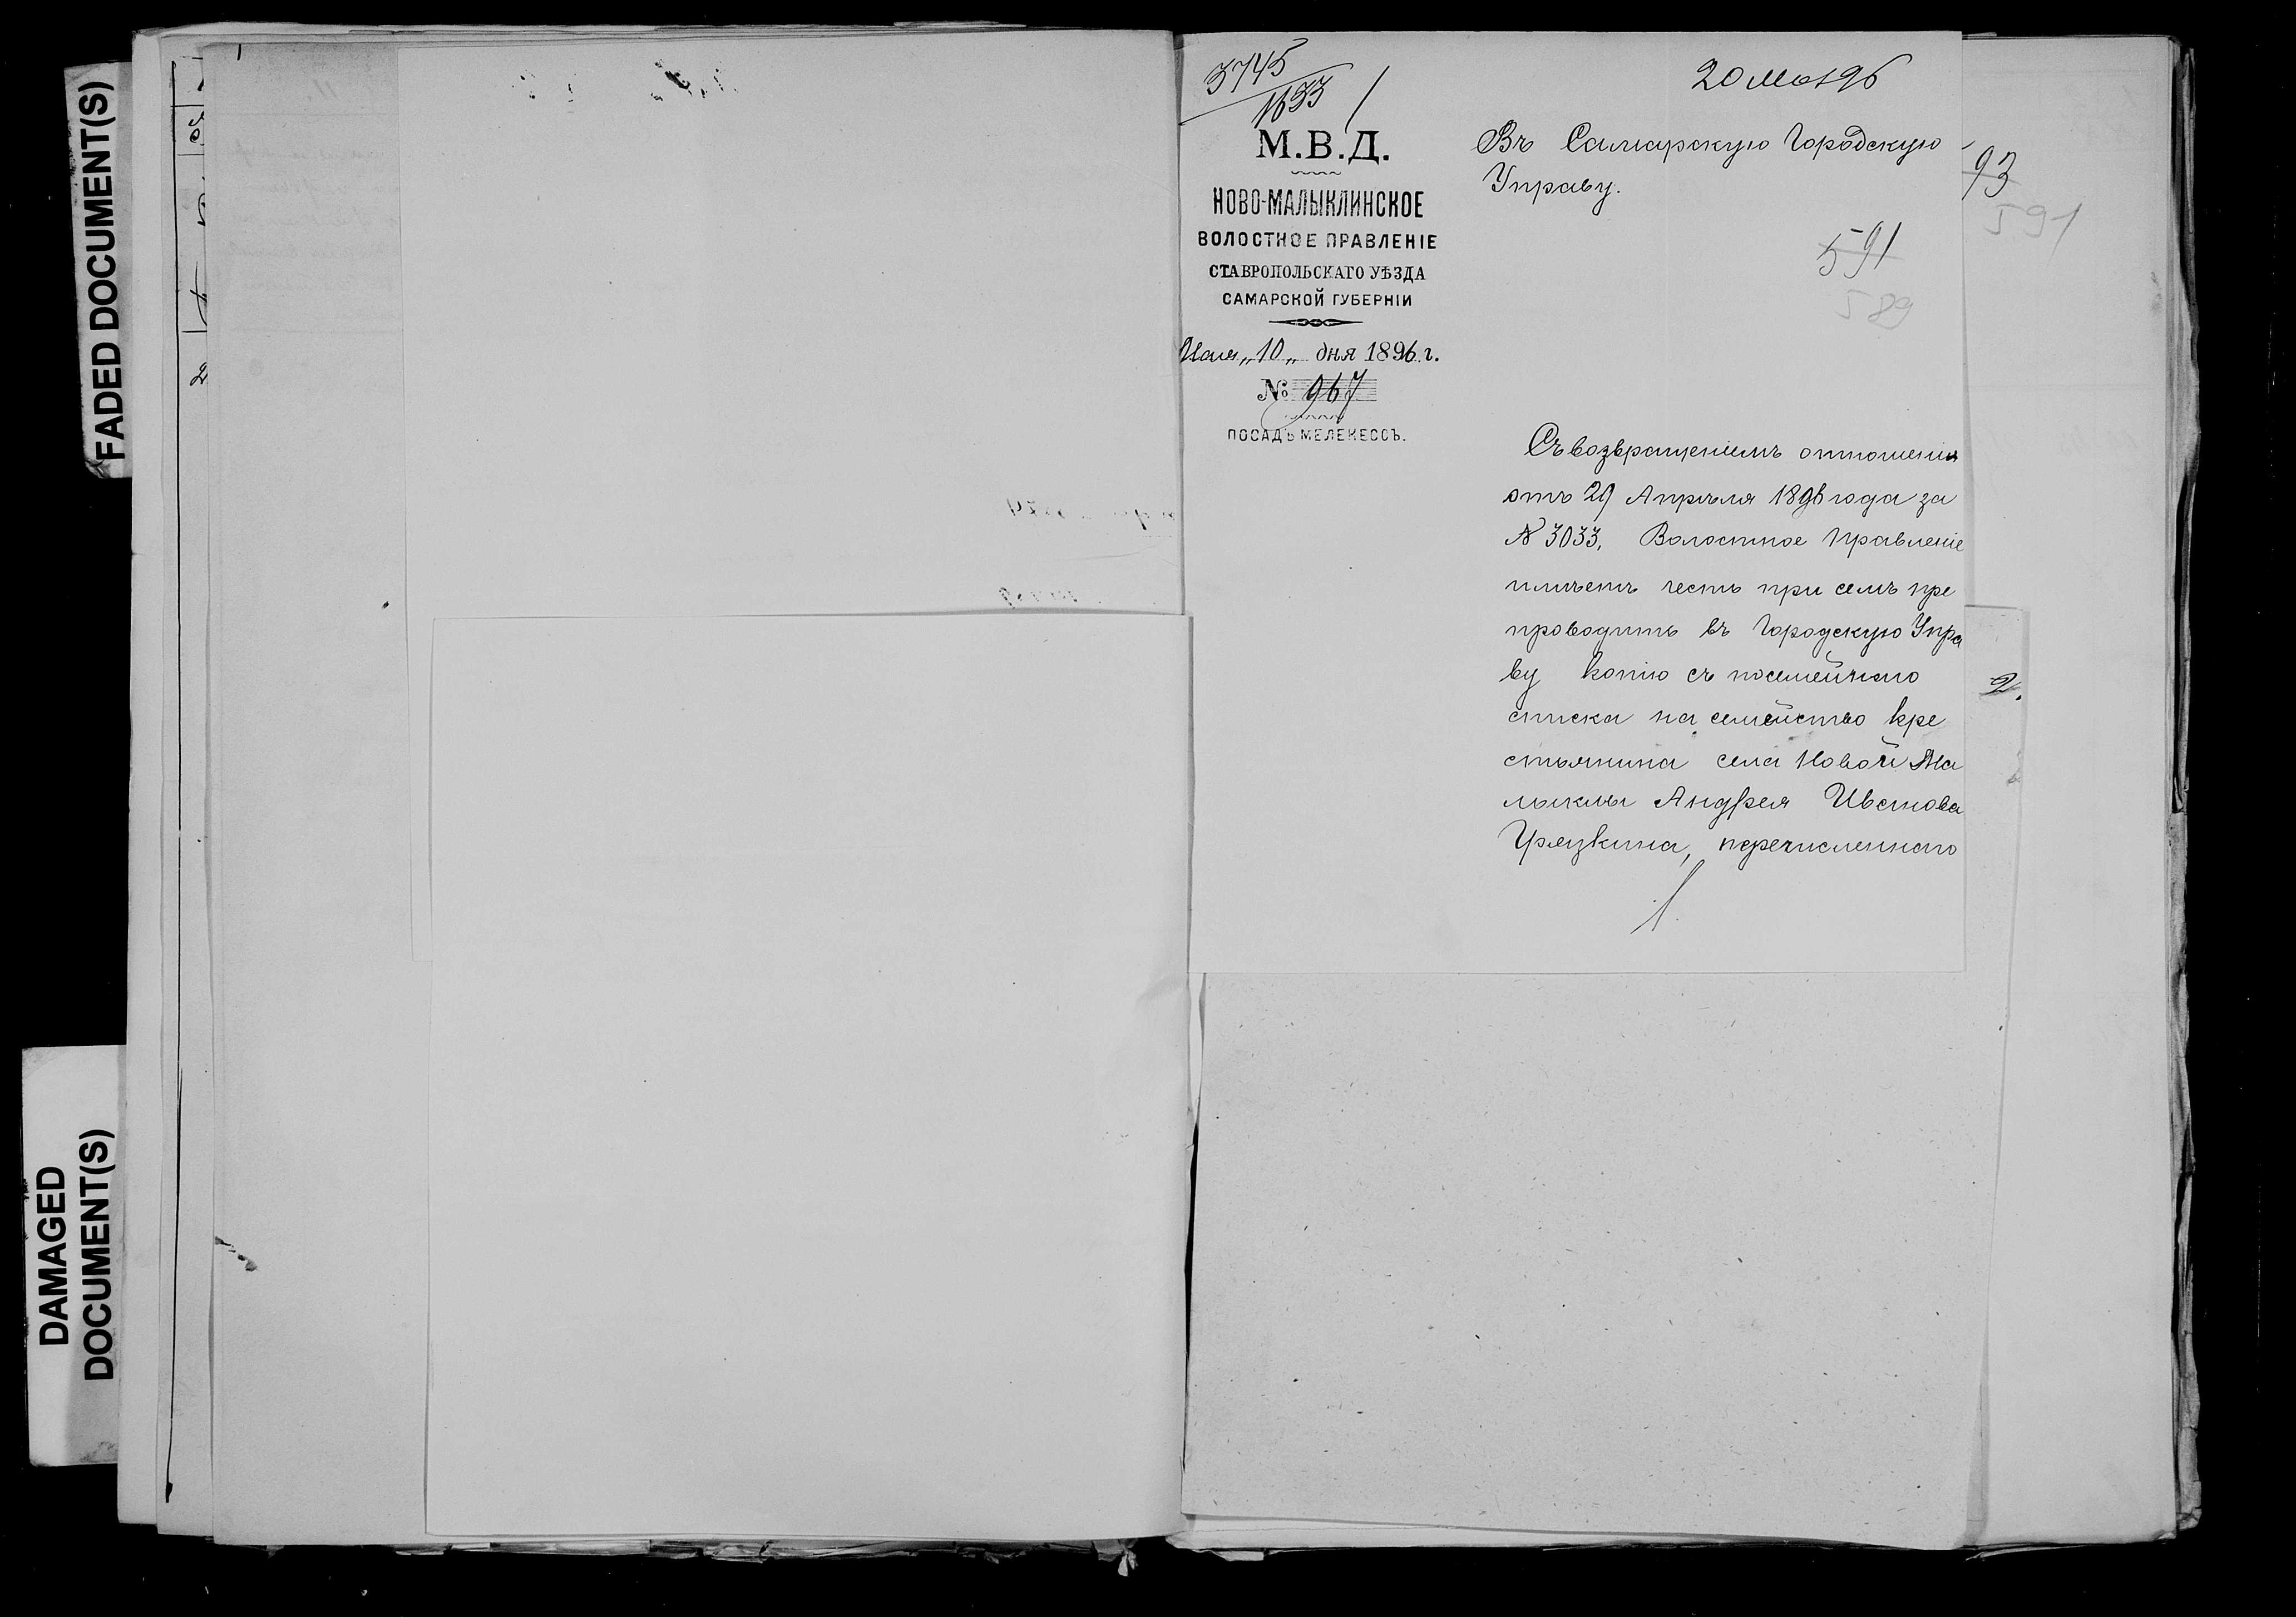 FADED DOCUMENT(S)
DAMAGED
DOCUMENT(S)
3745
1633
20 Мая 96
М.В.Д.
НОВО-МАЛЫКЛИНСКОЕ
ВОЛОСТНОЕ ПРАВЛЕНІЕ
СТАВРОПОЛЬСКАГО УѢЗДА
САМАРСКОЙ ГУБЕРНІИ
Мая „10„ дня 1896 г.
№ 967
ПОСАДЪ МЕЛЕКЕССЪ.
Въ Самарскую Городскую
Управу.
93
591
591
589
Съ возвращеніемъ отношенія
отъ 29 Апрѣля 1896 года за
№ 3033, Волостное Правленіе
имѣетъ честь при семъ пре
проводить въ Городскую Упра
ву копію съ посемейнаго
списка на семейство кре
стьянина села Новой Ма
лыклы Андрея
перечисленнаго
2.